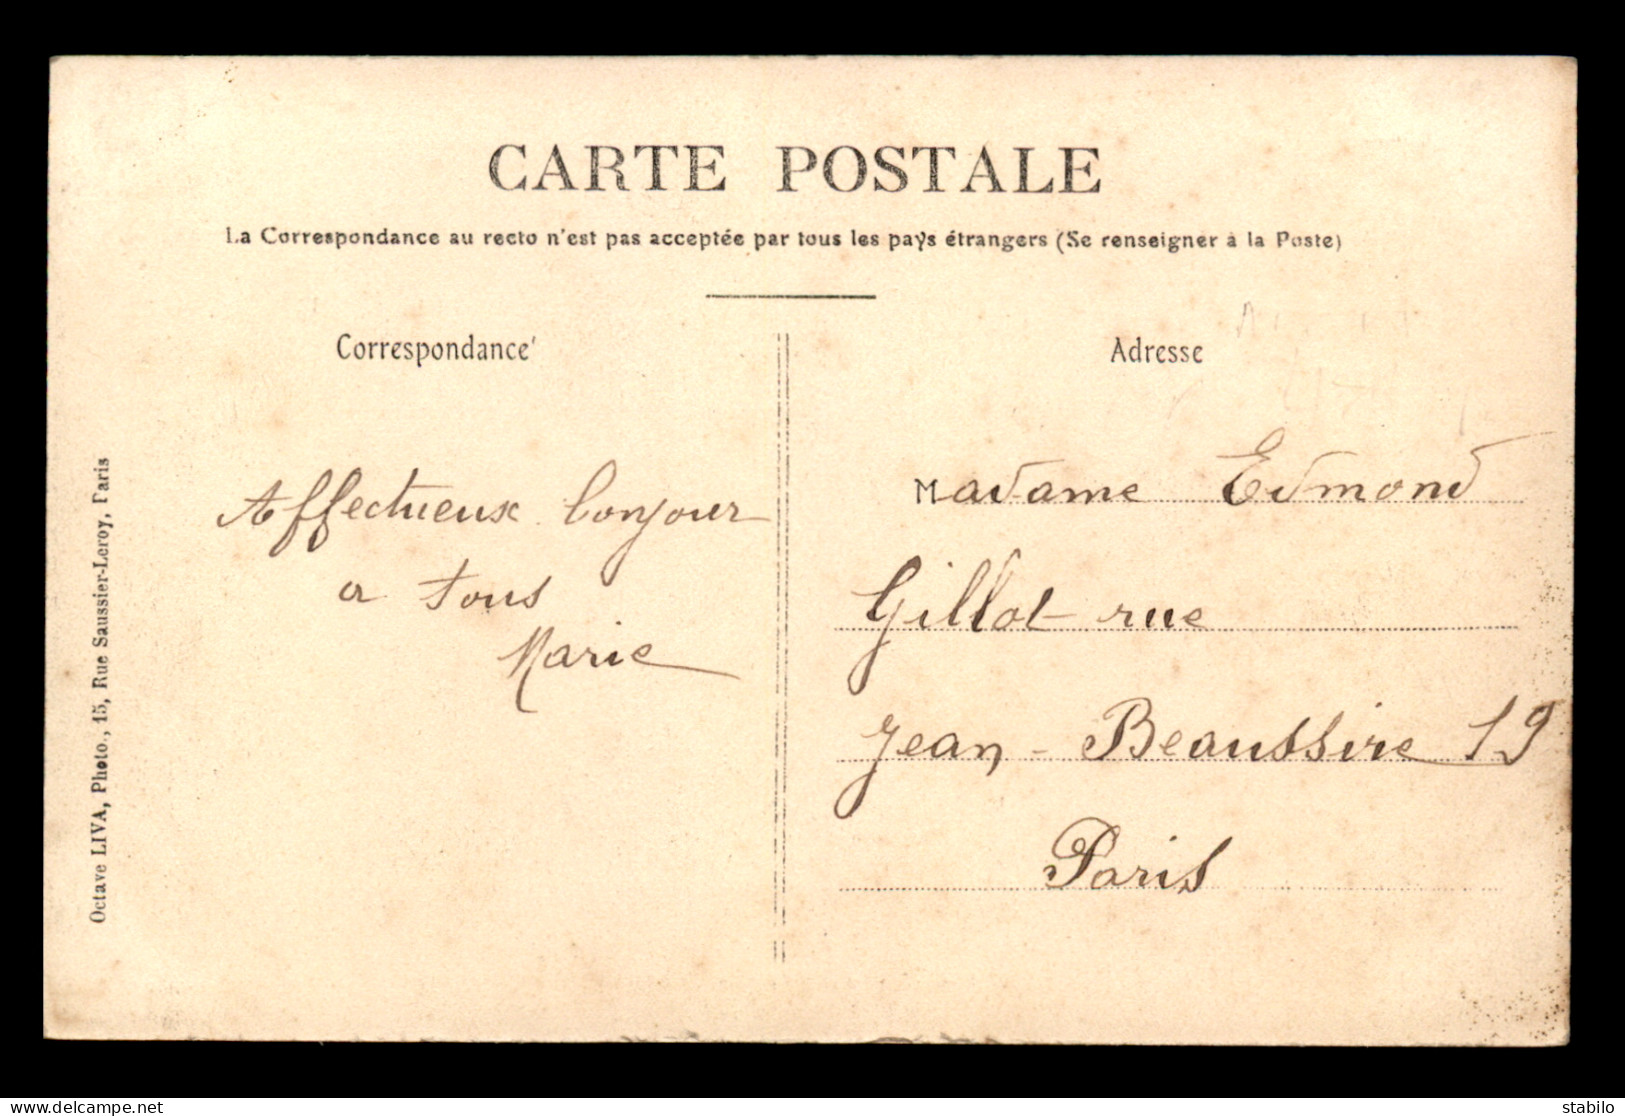 CARTE POSTALE
La Correspondance au recto n'est pas acceptée par tous les pays étrangers (Se renseigner à la Poste)
Correspondance
Affectueux bonjour
a tous
Marie
Adresse
Madame Edmond
Gillot rue
Jean-Beaussire 19
Paris
Octave LIVA, Photo., 15, Rue Saussier-Leroy, Paris
delcampe.net
stabilo